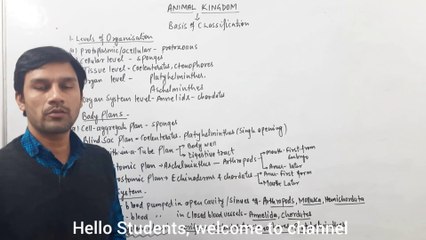 ANIMAL KINGDOM
Basis of Classification
1. Levels of Organisation
(a) Protoplasmic/acellular - protozoans
Cellular level - sponges
Tissue level - Coelenterates, ctenophores
Organ level - Platyhelminthes,
Aschelminthes
Organ System level - Annelids - chordates
Body Plans -
(a) Cell-aggregate plan - sponges
Blind Sac plan - Coelenterates, platyhelminthes (single opening)
within-a Tube Plan - Body wall
Digestive tract
Mouth - first form
Anus - later
stomic plan → Aschelminthes - Arthropods
stomic plan → Echinoderms & chordates
Anus - first form
Mouth later
System
blood pumped in open cavity / sinuses - Arthropods, Mollusca, Hemichordata
- blood " in closed blood vessels - Annelida, Chordates
Hello Students, welcome to channel